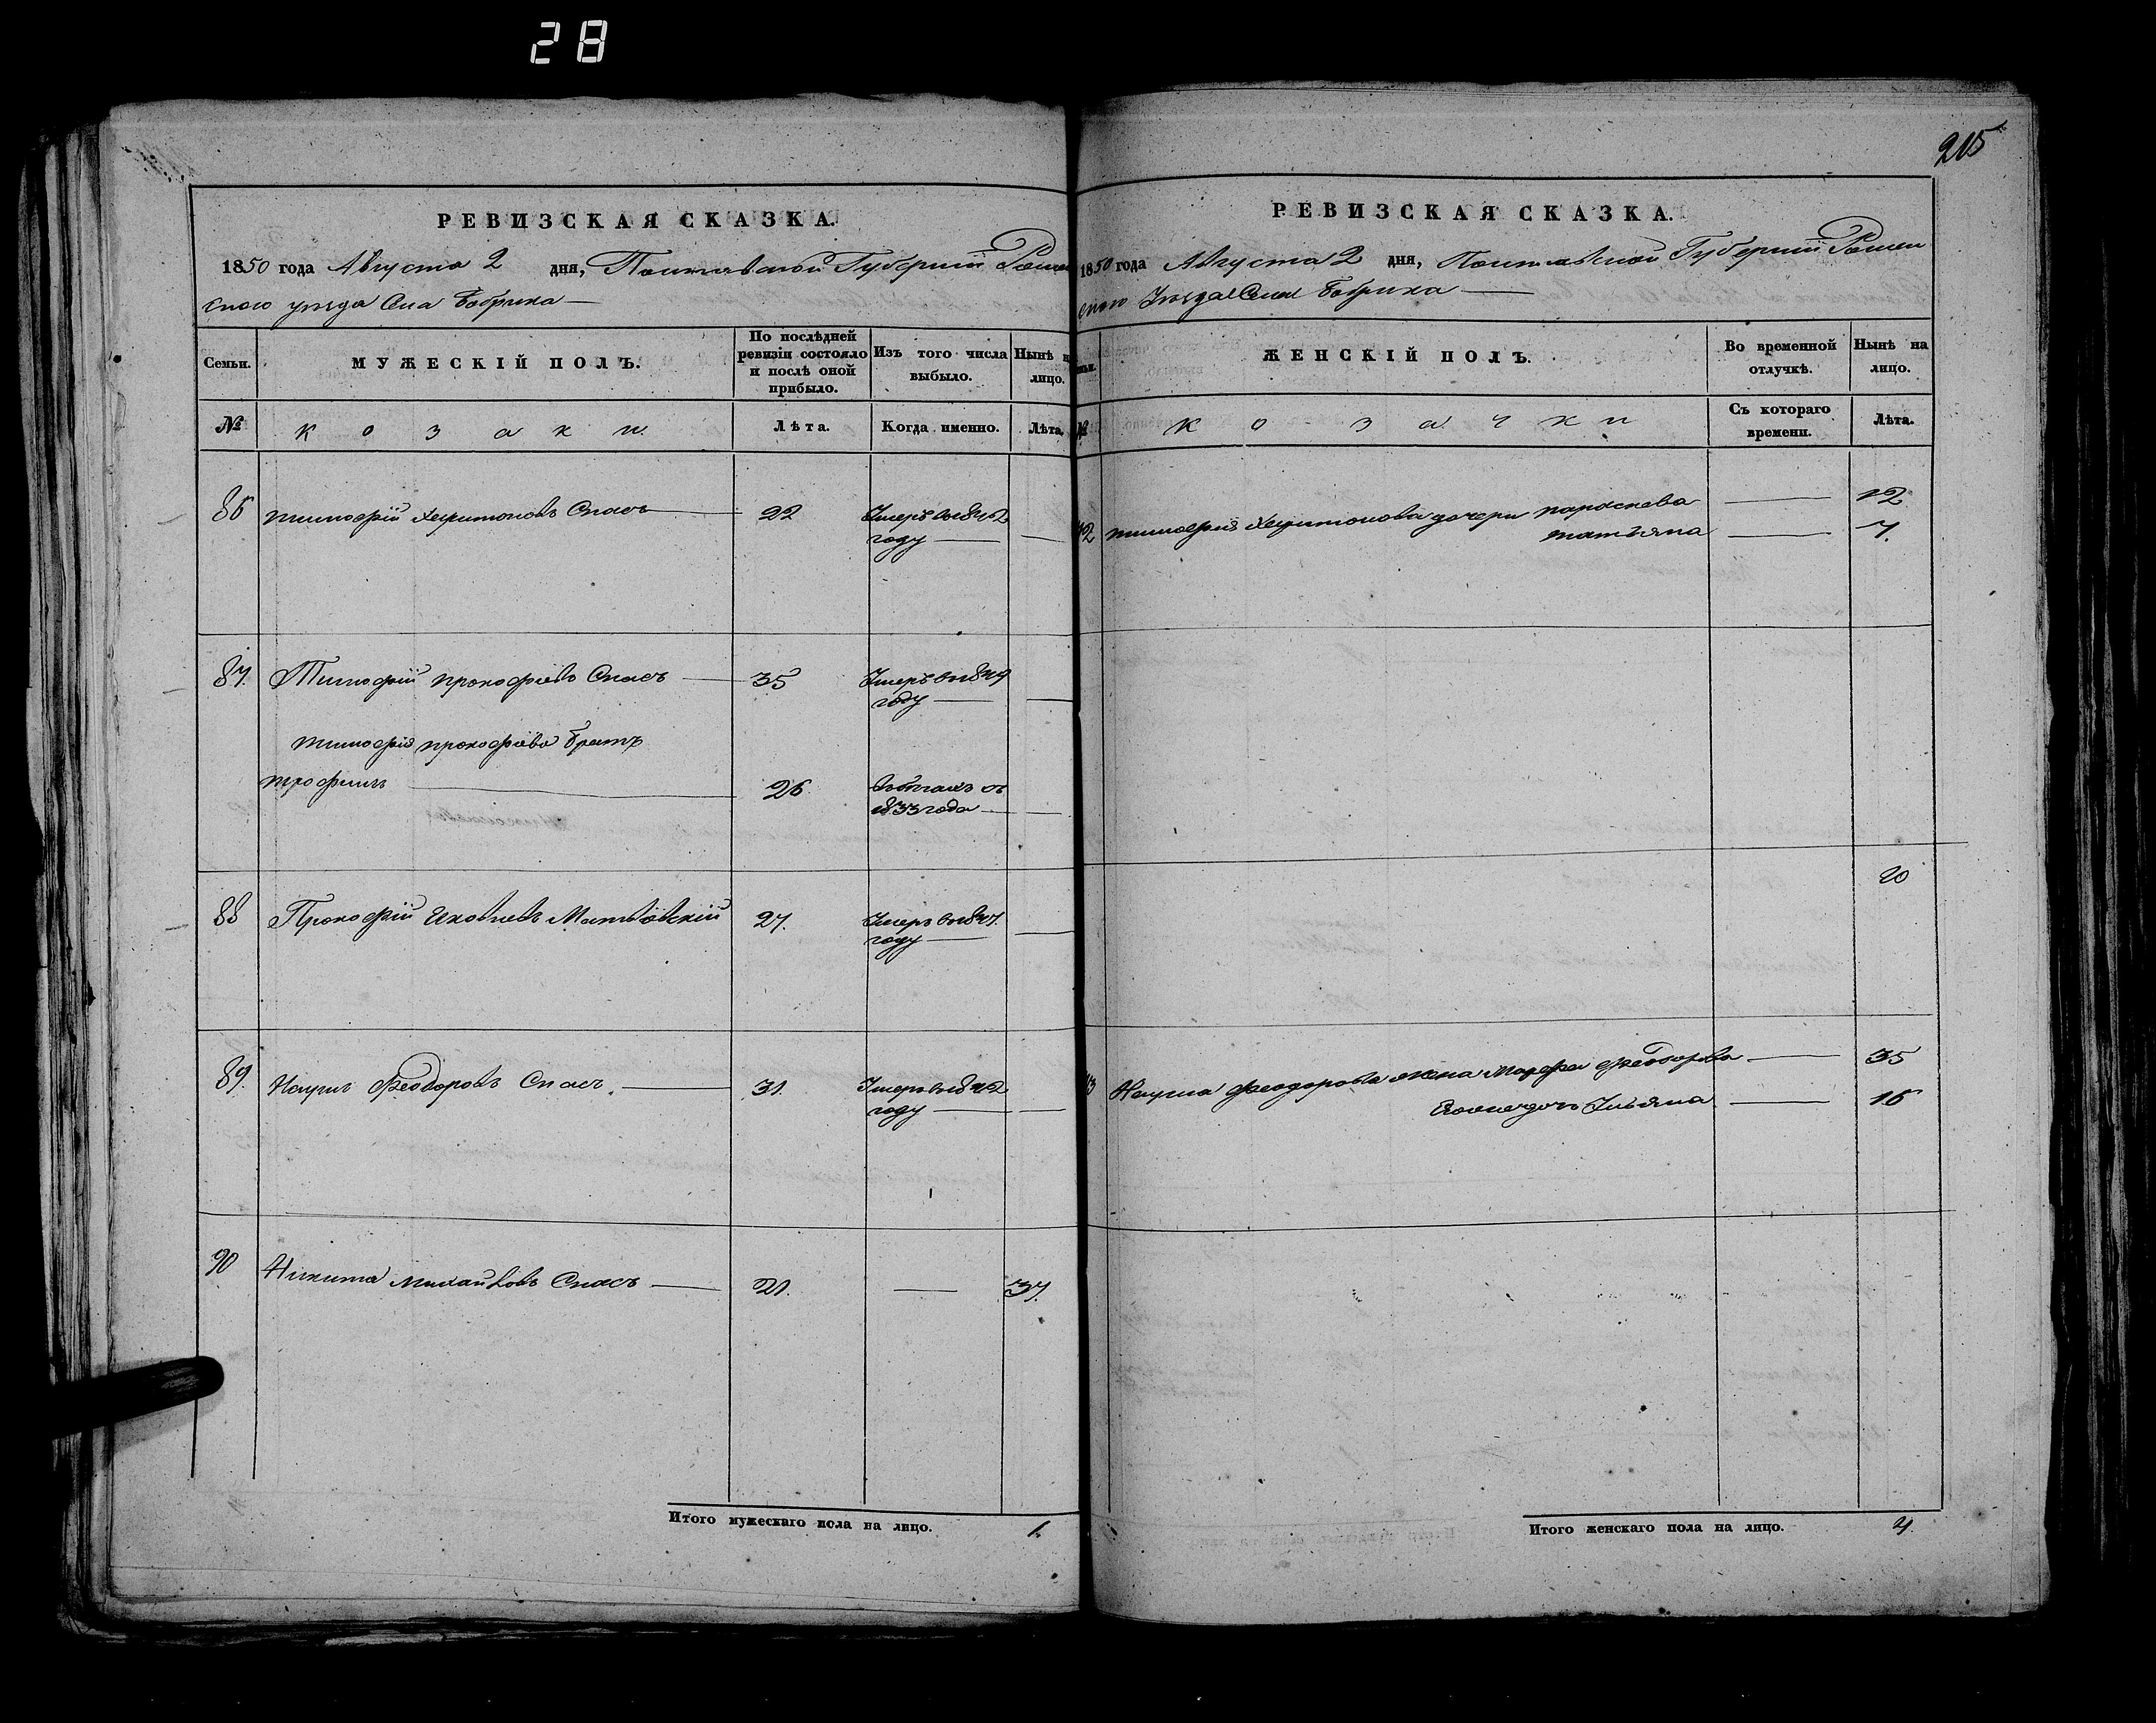 28
215
РЕВИЗСКАЯ СКАЗКА.
1850 года Августа 2 дня, Полтавской Губерніи Ромен
скаго уезда Села Бобрика
Семьи.
МУЖЕСКІЙ ПОЛЪ.
По послѣдней ревизіи состояло и послѣ оной прибыло.
Изъ того числа выбыло.
Нынѣ на лицо.
№
козаки
Лѣта.
Когда именно.
Лѣта.
86 тимофѣй Харитоновъ Спасъ 22 Умеръ въ 1842
году
87. Тимофѣй прокофіевъ Спасъ 35 Умеръ въ 1849
году
тимофѣя прокофіева братъ
трофимъ 26 Въ бегахъ съ
1833 года
88 Прокофій Яковлевъ 27. Умеръ въ 1847.
году
89. Наумъ Феодоровъ Спасъ 31. Умеръ въ 1842
году
90 Никита Михайловъ Спасъ 21. 37.
Итого мужескаго пола на лицо. 1.
РЕВИЗСКАЯ СКАЗКА.
1850 года Августа 2 дня, Полтавской Губерніи Ромен
скаго Уезда Села Бобрика
ЖЕНСКІЙ ПОЛЪ.
Во временной отлучкѣ.
Нынѣ на лицо.
№
козачки
Съ котораго времени.
Лѣта.
тимофѣя Харитонова дочери параскева 12
татьяна 7.
20
Наума Феодорова жена Марфа Феодорова 35
Ульяна 16
Итого женскаго пола на лицо. 4.